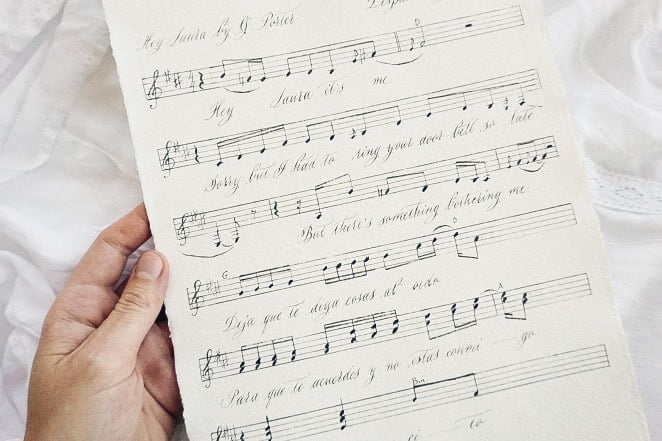 Hey Laura by G. Porter Despa
D
Hey Laura it's me
Sorry but I had to ring your door bell so late
But there's something bothering me
G D
Deja que te diga cosas al oido
A
Para que te acuerdes y no estas conmi - go
Bm
ci - to